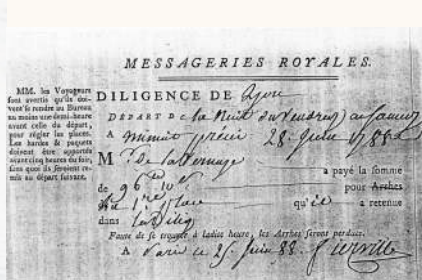 MESSAGERIES ROYALES.
MM. les Voyageurs
sont avertis qu'ils doi-
vent se rendre au Bureau
au moins une demi-heure
avant celle du départ,
pour régler les places.
Les hardes & paquets
doivent être apportés
avant cinq heures du soir,
sans quoi ils seroient re-
mis au départ suivant.
DILIGENCE DE Lyon
DÉPART DE la Nuit du Vendredi au Samedi
A minuit précis 28 Juin 1788
M de
a payé la somme
de 96 10 pour Arrhes
place qu'il a retenue
dans la Dilig
Faute de se trouver à ladite heure, les Arrhes seront perdues.
A Paris ce 25 Juin 88.